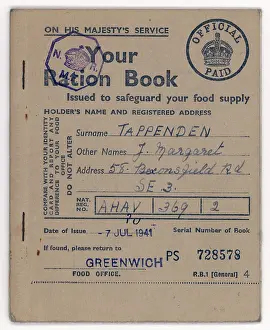 ON HIS MAJESTY'S SERVICE
OFFICIAL
PAID
Your
Ration Book
Issued to safeguard your food supply
HOLDER'S NAME AND REGISTERED ADDRESS
COMPARE WITH YOUR IDENTITY
CARD AND REPORT ANY
DIFFERENCE TO YOUR FOOD
OFFICE
DO NOT ALTER
Surname TAPPENDEN
Other Names J. Margaret
Address 58 Beaconsfield Rd
SE 3.
NAT. REG. NO. AHAV 369 2
Date of Issue -7 JUL 1941 Serial Number of Book
If found, please return to PS 728578
GREENWICH
FOOD OFFICE. R.B.1 [General] 4